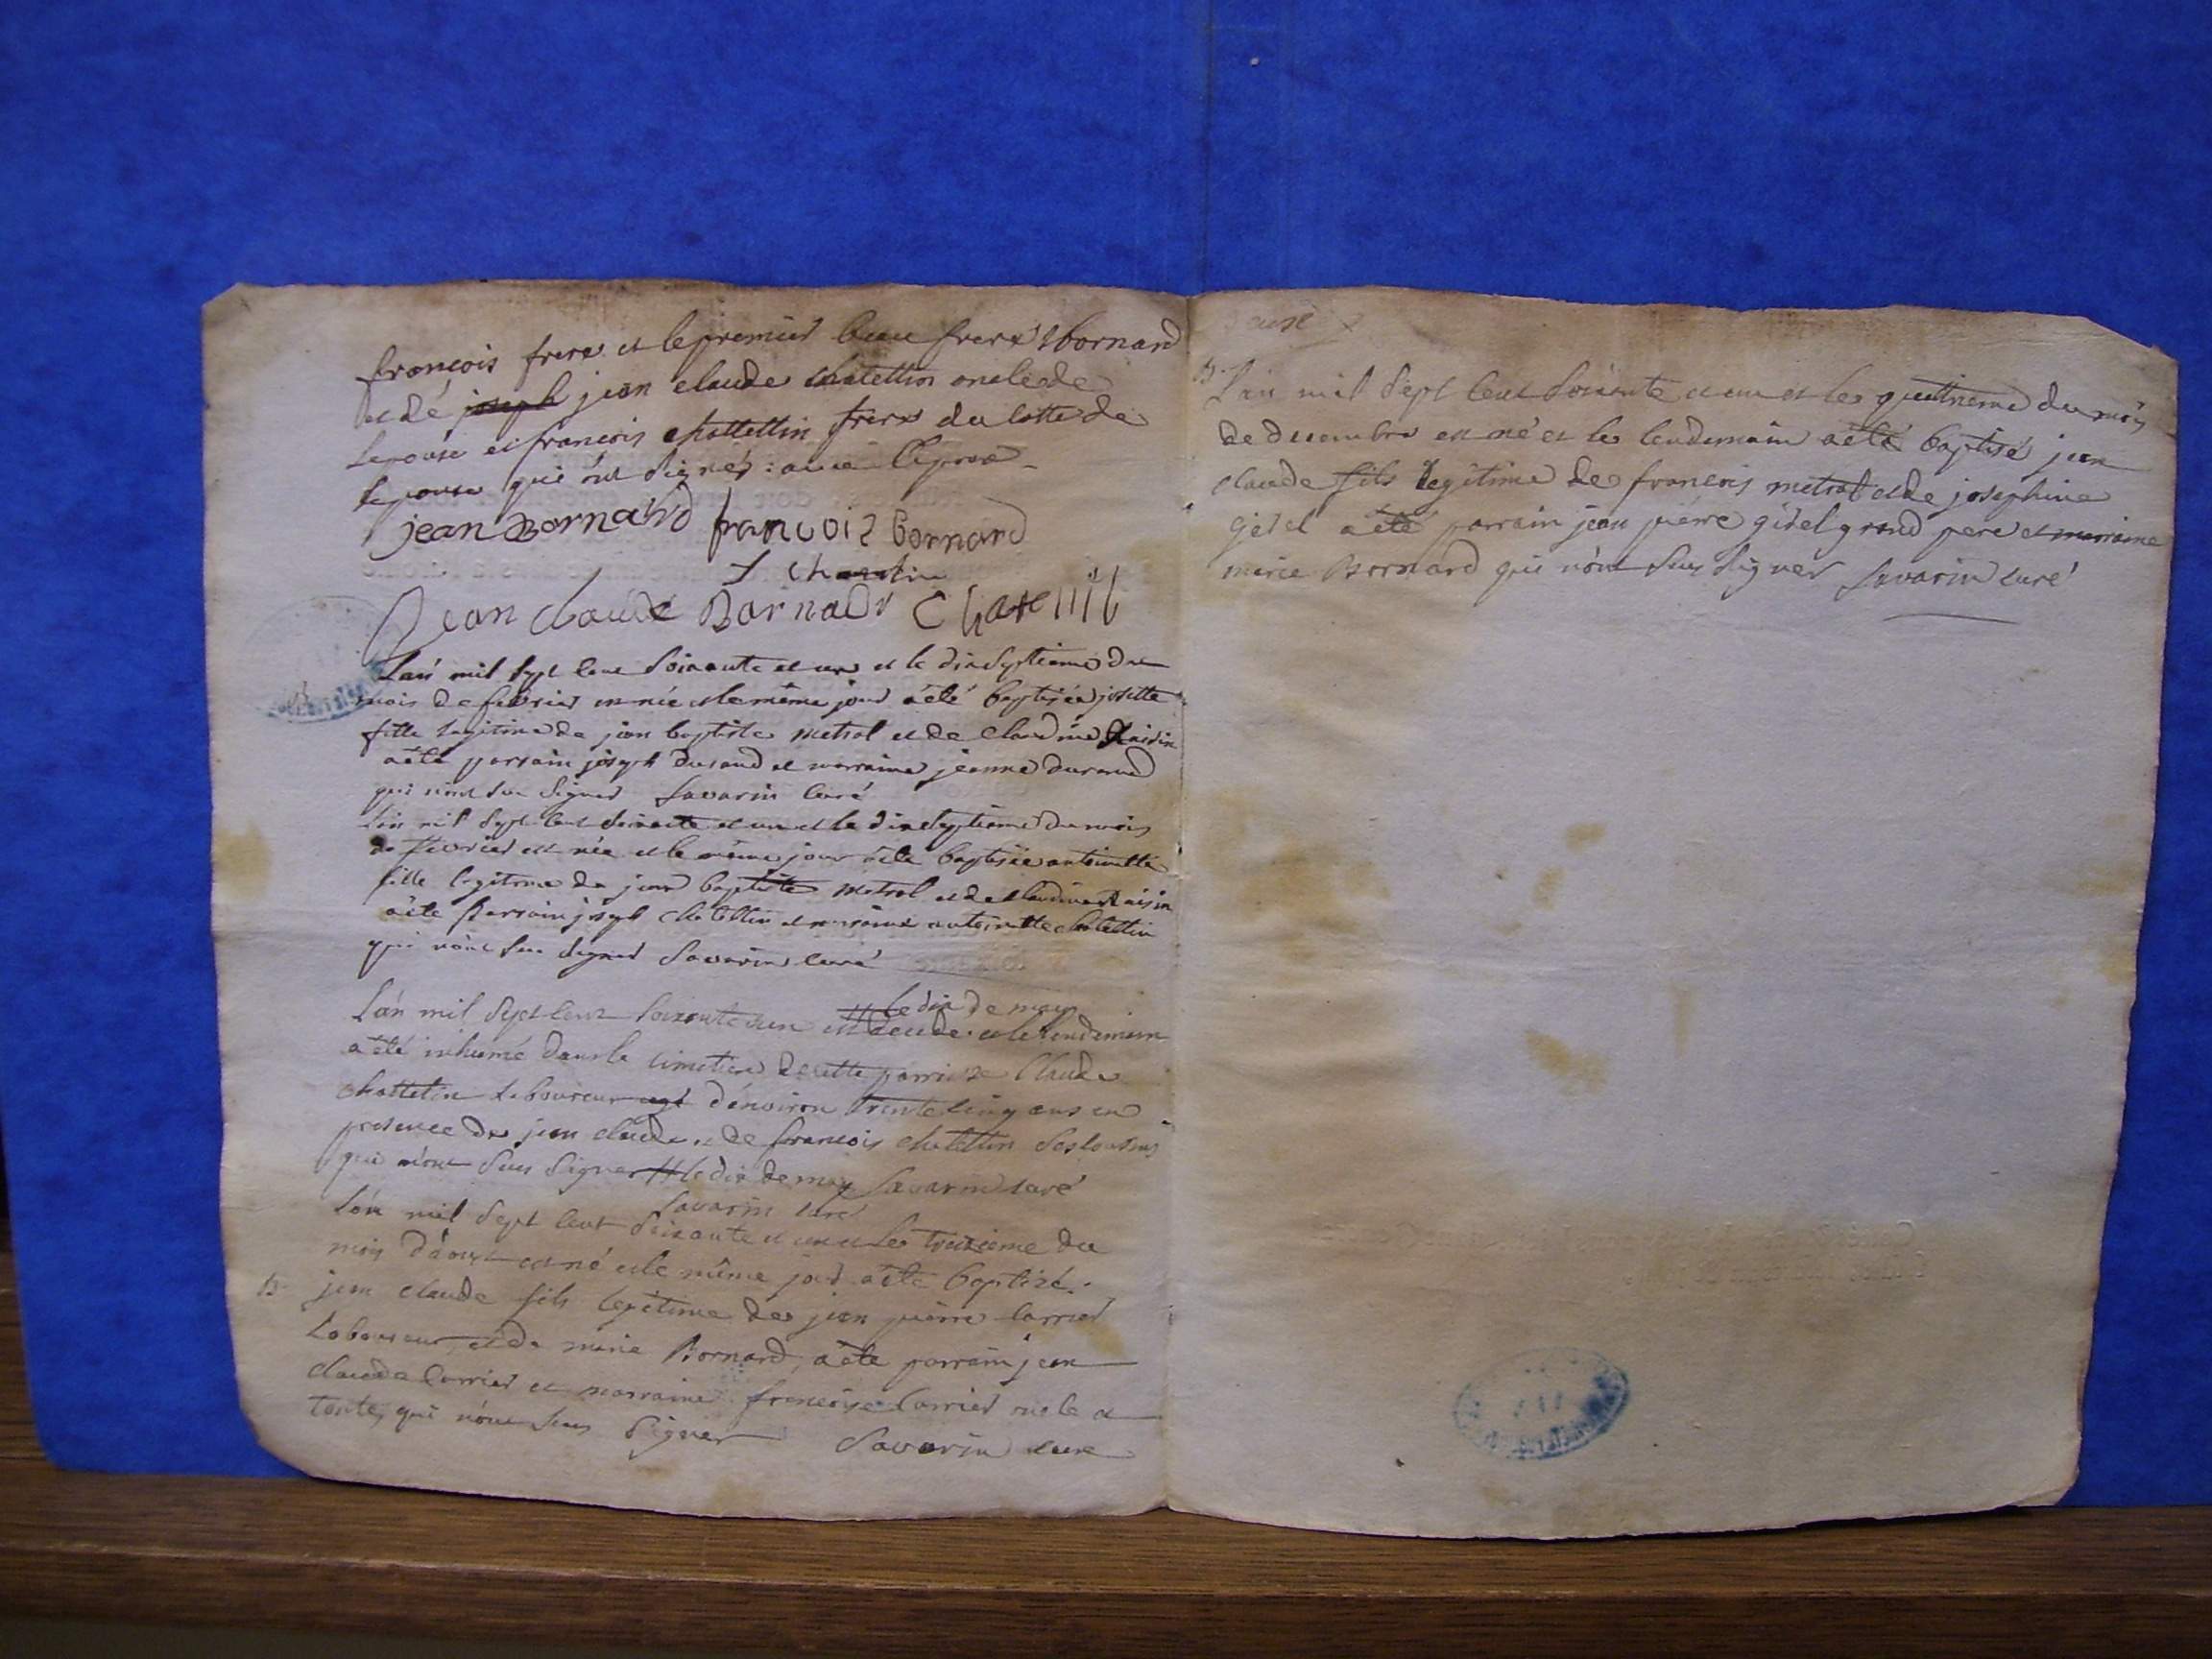 francois frere et le premier beau frere bornard
et dé joseph jean claude chatettin oncle de
lepouse et francois chattettin frere du cotte de
lepouse qui ont signés : avec
jean Bornard francois Bornard
jean claude Barnadr
Lan mil sept cent soixante et un et le dix septieme du
mois de fevrier est née et le même jour a èté baptisée josette
fille legitime de jean baptiste metral et de claudine Raisin
a èté parrain joseph durand et marraine jeanne durand
qui n'ont su signer Savarin curé
Lan mil sept cent soixante et un et le dix septieme du mois
de fevrier est née et le même jour a èté baptisée antoinette
fille legitime de jean baptiste metral et de claudine Raisin
a èté parrain joseph chatettin et marraine antoinette chatettin
qui n'ont su signer Savarin curé
le dix de may
L'an mil sept cent soixante et un est decede et le lendemain
a èté inhumé dans le cimetiere de cette parroisse Claude
chattetin laboureur agé d'environ trente cinq ans en
presence de jean claude et de francois chatettin ses cousins
qui n'ont seu signer le dix de may Savarin curé
Savarin curé
L'an mil sept cent soixante et un et le treizieme du
mois d'aoust est né et le même jour a èté baptizé
B. jean claude fils legitime de jean pierre Carrier
Laboureur, et de marie Bornard, a èté parrain jean
claude Carrier et marraine francoise Carrier oncle et
tante, qui n'ont seu signer Savarin curé
B. L'an mil sept cent soixante et un et le quatrieme du mois
de decembre est né et le lendemain a èté baptisé jean
claude fils legitime de francois metral et de josephine
gidel a èté parrain jean pierre gidel grand pere et marraine
marie Bornard qui n'ont seu signer Savarin curé